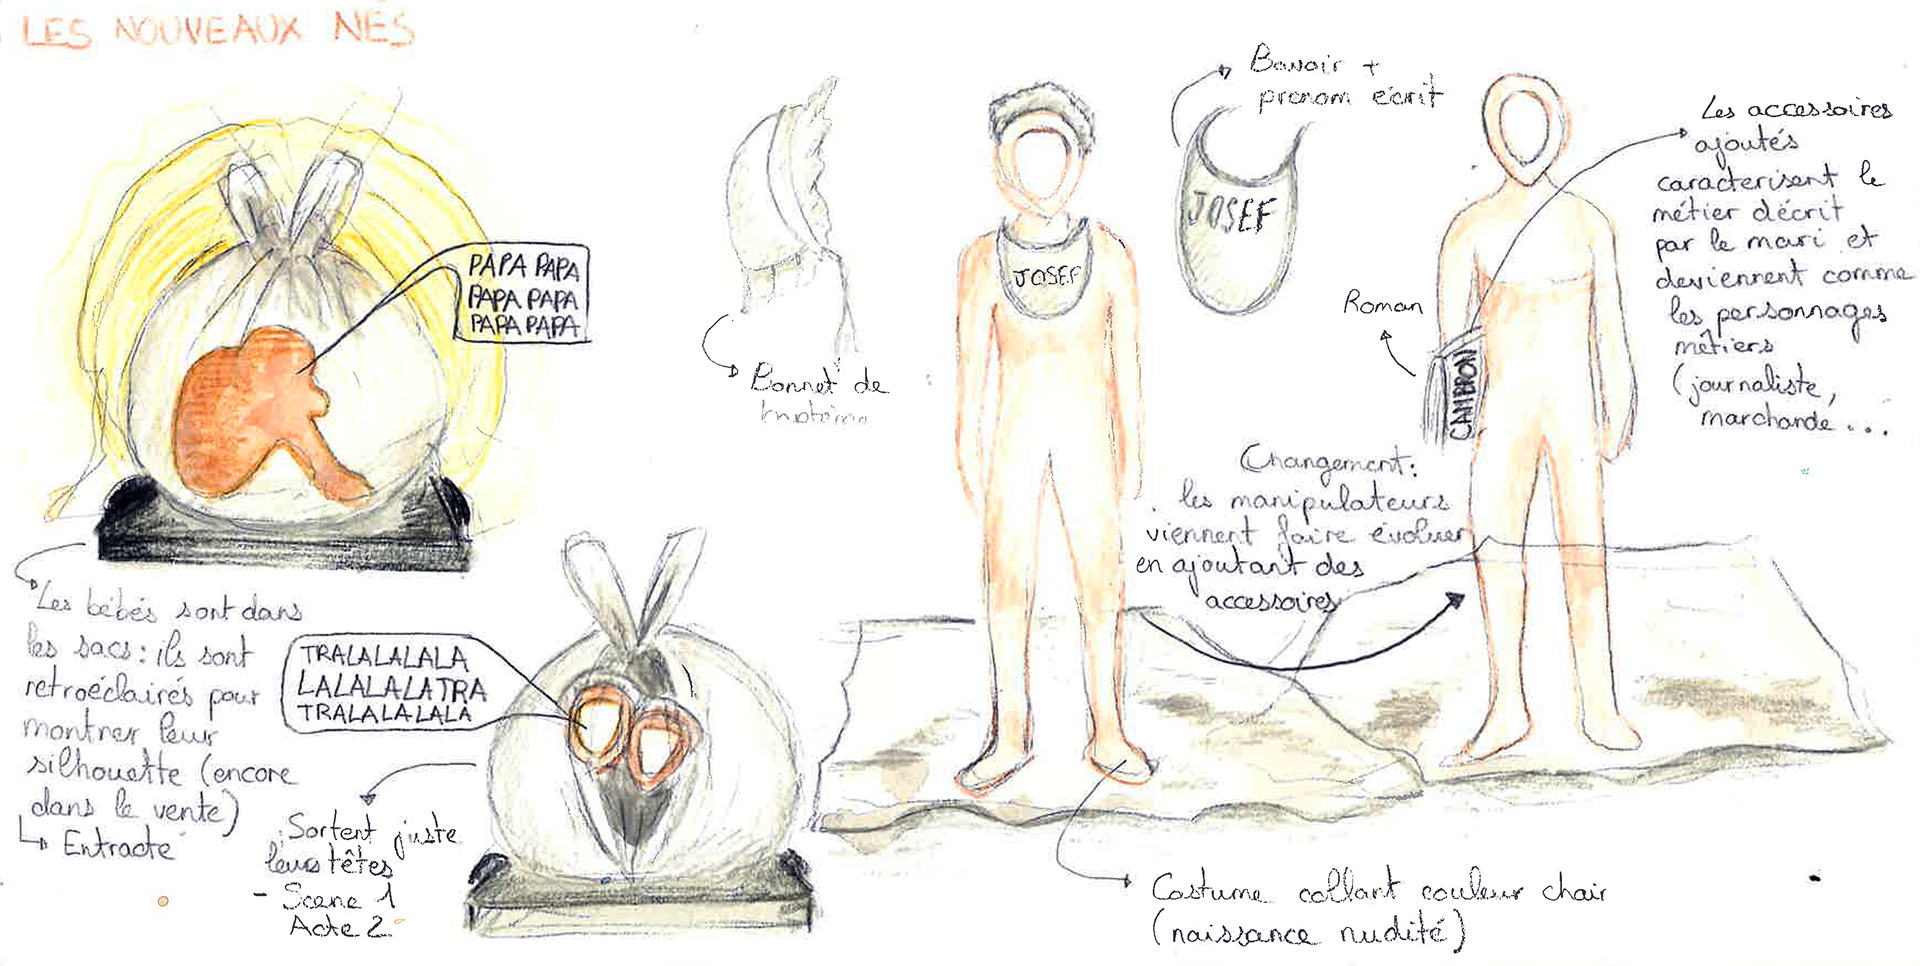 LES NOUVEAUX NÉS
PAPA PAPA
PAPA PAPA
PAPA PAPA
Les bébés sont dans
les sacs : ils sont
retroéclairés pour
montrer leur
silhouette (encore
dans le vente)
Entracte
TRALALALALA
LALALALATRA
TRALALALALA
Sortent juste
leurs têtes
- Scene 1
Acte 2
Bonnet de
JOSEF
Bavoir +
prenom écrit
JOSEF
Changement :
les manipulateurs
viennent faire évoluer
en ajoutant des
accessoires
Roman
CAMBRON
Les accessoires
ajoutés
caracterisent le
métier décrit
par le mari et
deviennent comme
les personnages
métiers
(journaliste,
marchande...
Costume collant couleur chair
(naissance nudité)